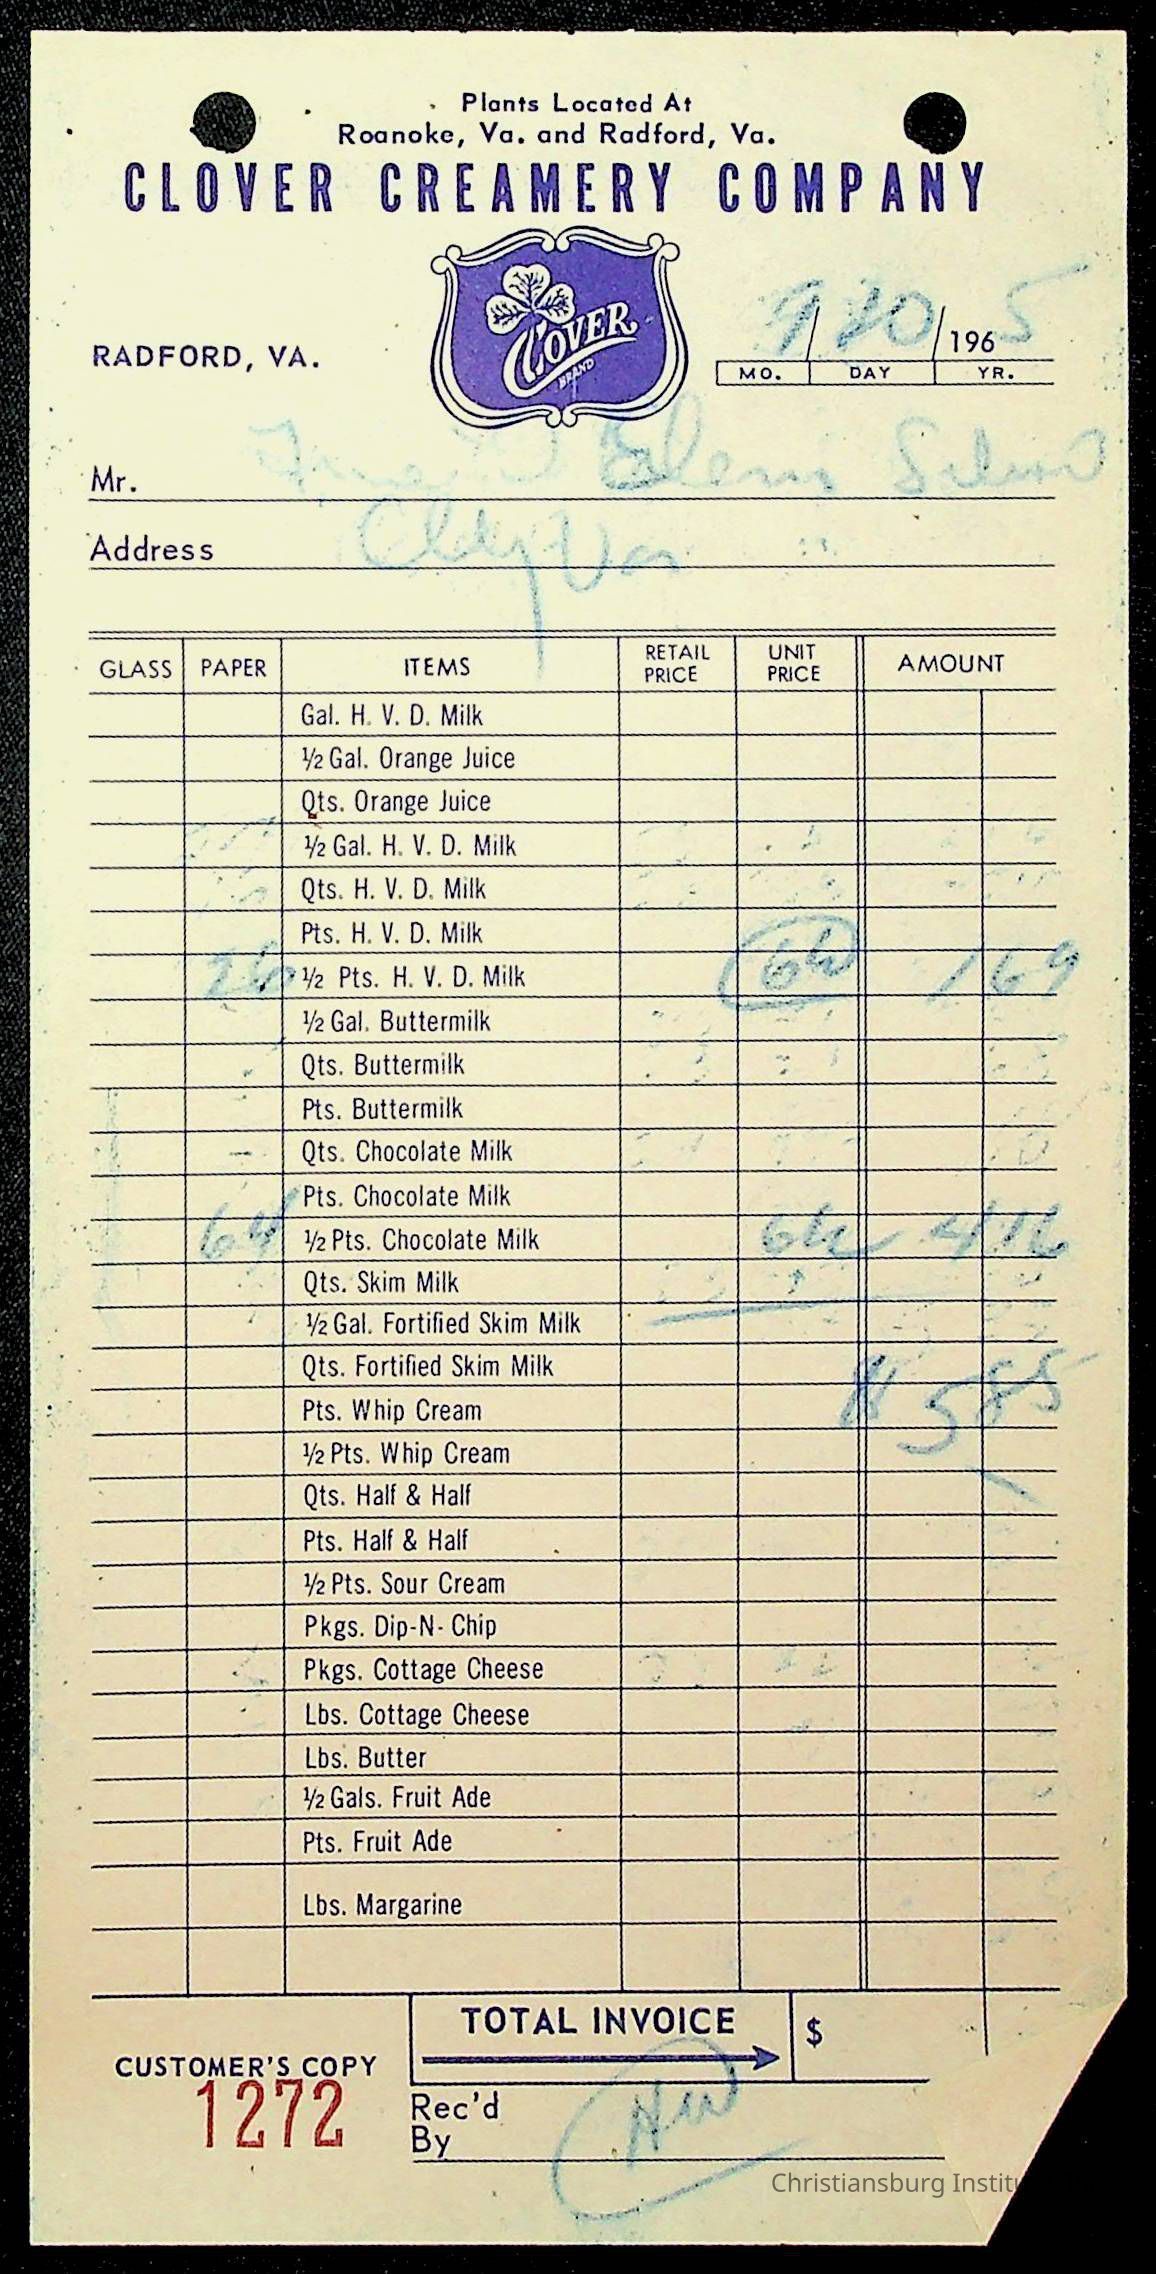 Plants Located At
Roanoke, Va. and Radford, Va.
CLOVER CREAMERY COMPANY
CLOVER
BRAND
RADFORD, VA.
9/20/1965
MO. DAY YR.
Mr. Elem
Address Va
GLASS PAPER ITEMS RETAIL PRICE UNIT PRICE AMOUNT
Gal. H. V. D. Milk
½ Gal. Orange Juice
Qts. Orange Juice
½ Gal. H. V. D. Milk
Qts. H. V. D. Milk
Pts. H. V. D. Milk
26 ½ Pts. H. V. D. Milk 6½ 1 69
½ Gal. Buttermilk
Qts. Buttermilk
Pts. Buttermilk
Qts. Chocolate Milk
Pts. Chocolate Milk
64 ½ Pts. Chocolate Milk 6½ 4 16
Qts. Skim Milk
½ Gal. Fortified Skim Milk
Qts. Fortified Skim Milk
$ 5 85
Pts. Whip Cream
½ Pts. Whip Cream
Qts. Half & Half
Pts. Half & Half
½ Pts. Sour Cream
Pkgs. Dip-N-Chip
Pkgs. Cottage Cheese
Lbs. Cottage Cheese
Lbs. Butter
½ Gals. Fruit Ade
Pts. Fruit Ade
Lbs. Margarine
TOTAL INVOICE $
CUSTOMER'S COPY
1272
Rec'd
By
Christiansburg Institu